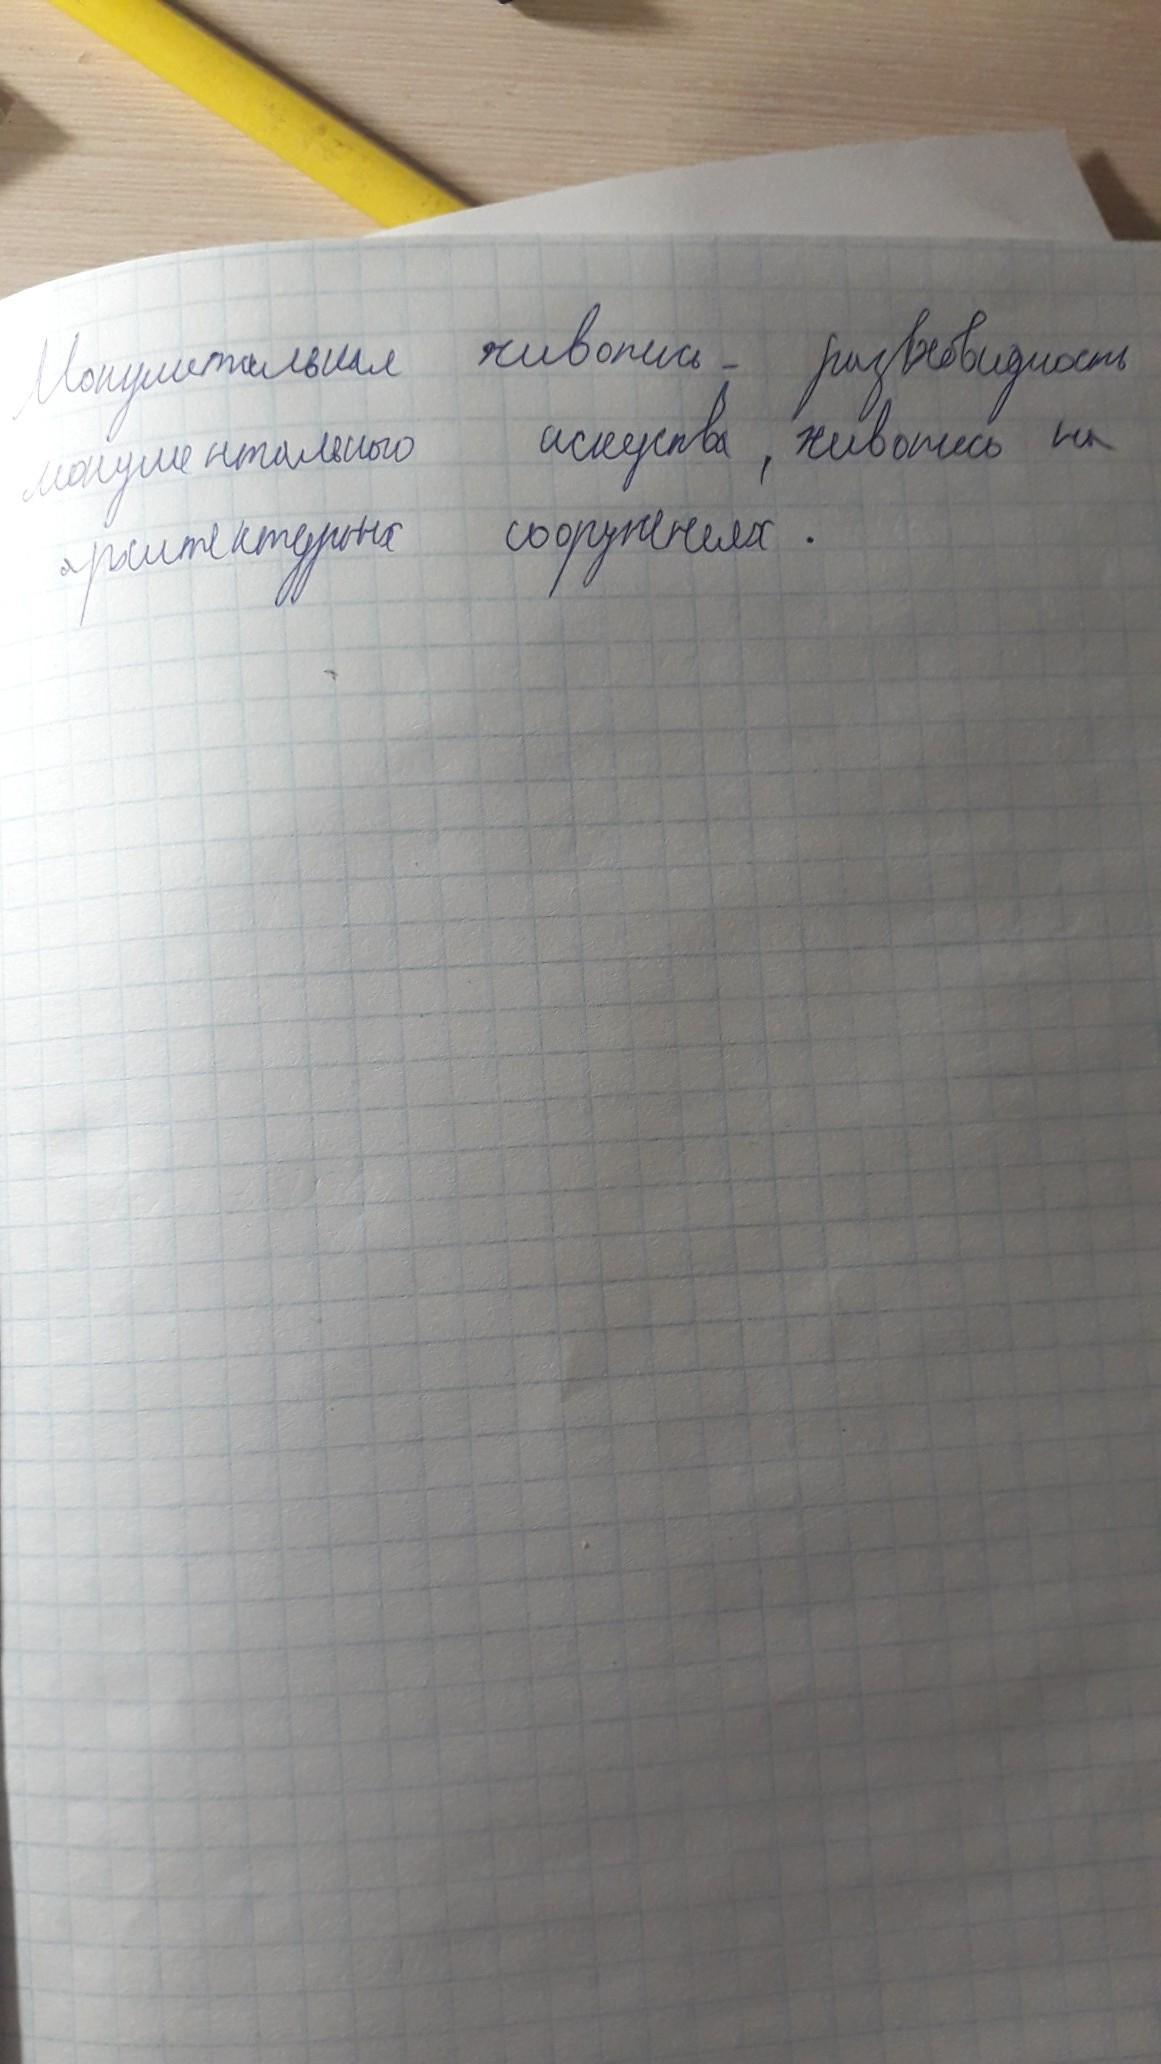 Монументальная живопись - разновидность
монументального искуства, живопись на
архитектурных сооружениях.